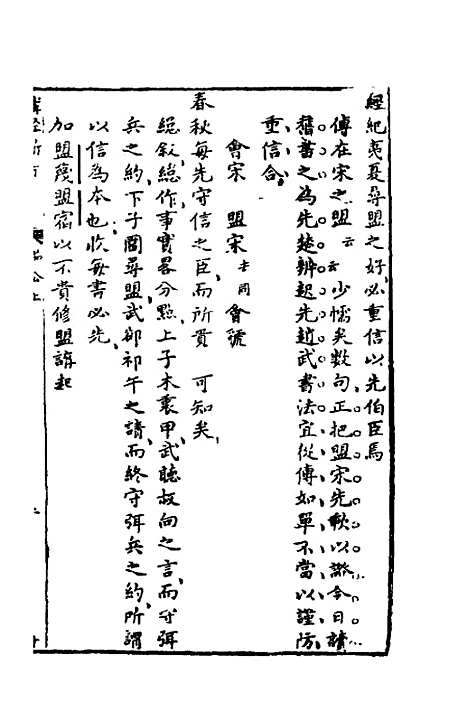 經紀夷夏尋盟之好必重信以先伯臣焉
傳在宋之盟云云少懦矣數句正把盟宋先歃以激今日讀
舊書之為先楚辨起先趙武書法宜從傳如單不當以謹防
重信合
會宋　盟宋　去同　會虢
春秋每先守信之臣而所貴　可知矣
總叙總作事實畧分點上子木裏甲武聽叔向之言而守弭
兵之約下子圍尋盟武卻祁午之請而終守弭兵之約所謂
以信為本也收每書必先
加盟蔑盟宿以不貴修盟講起